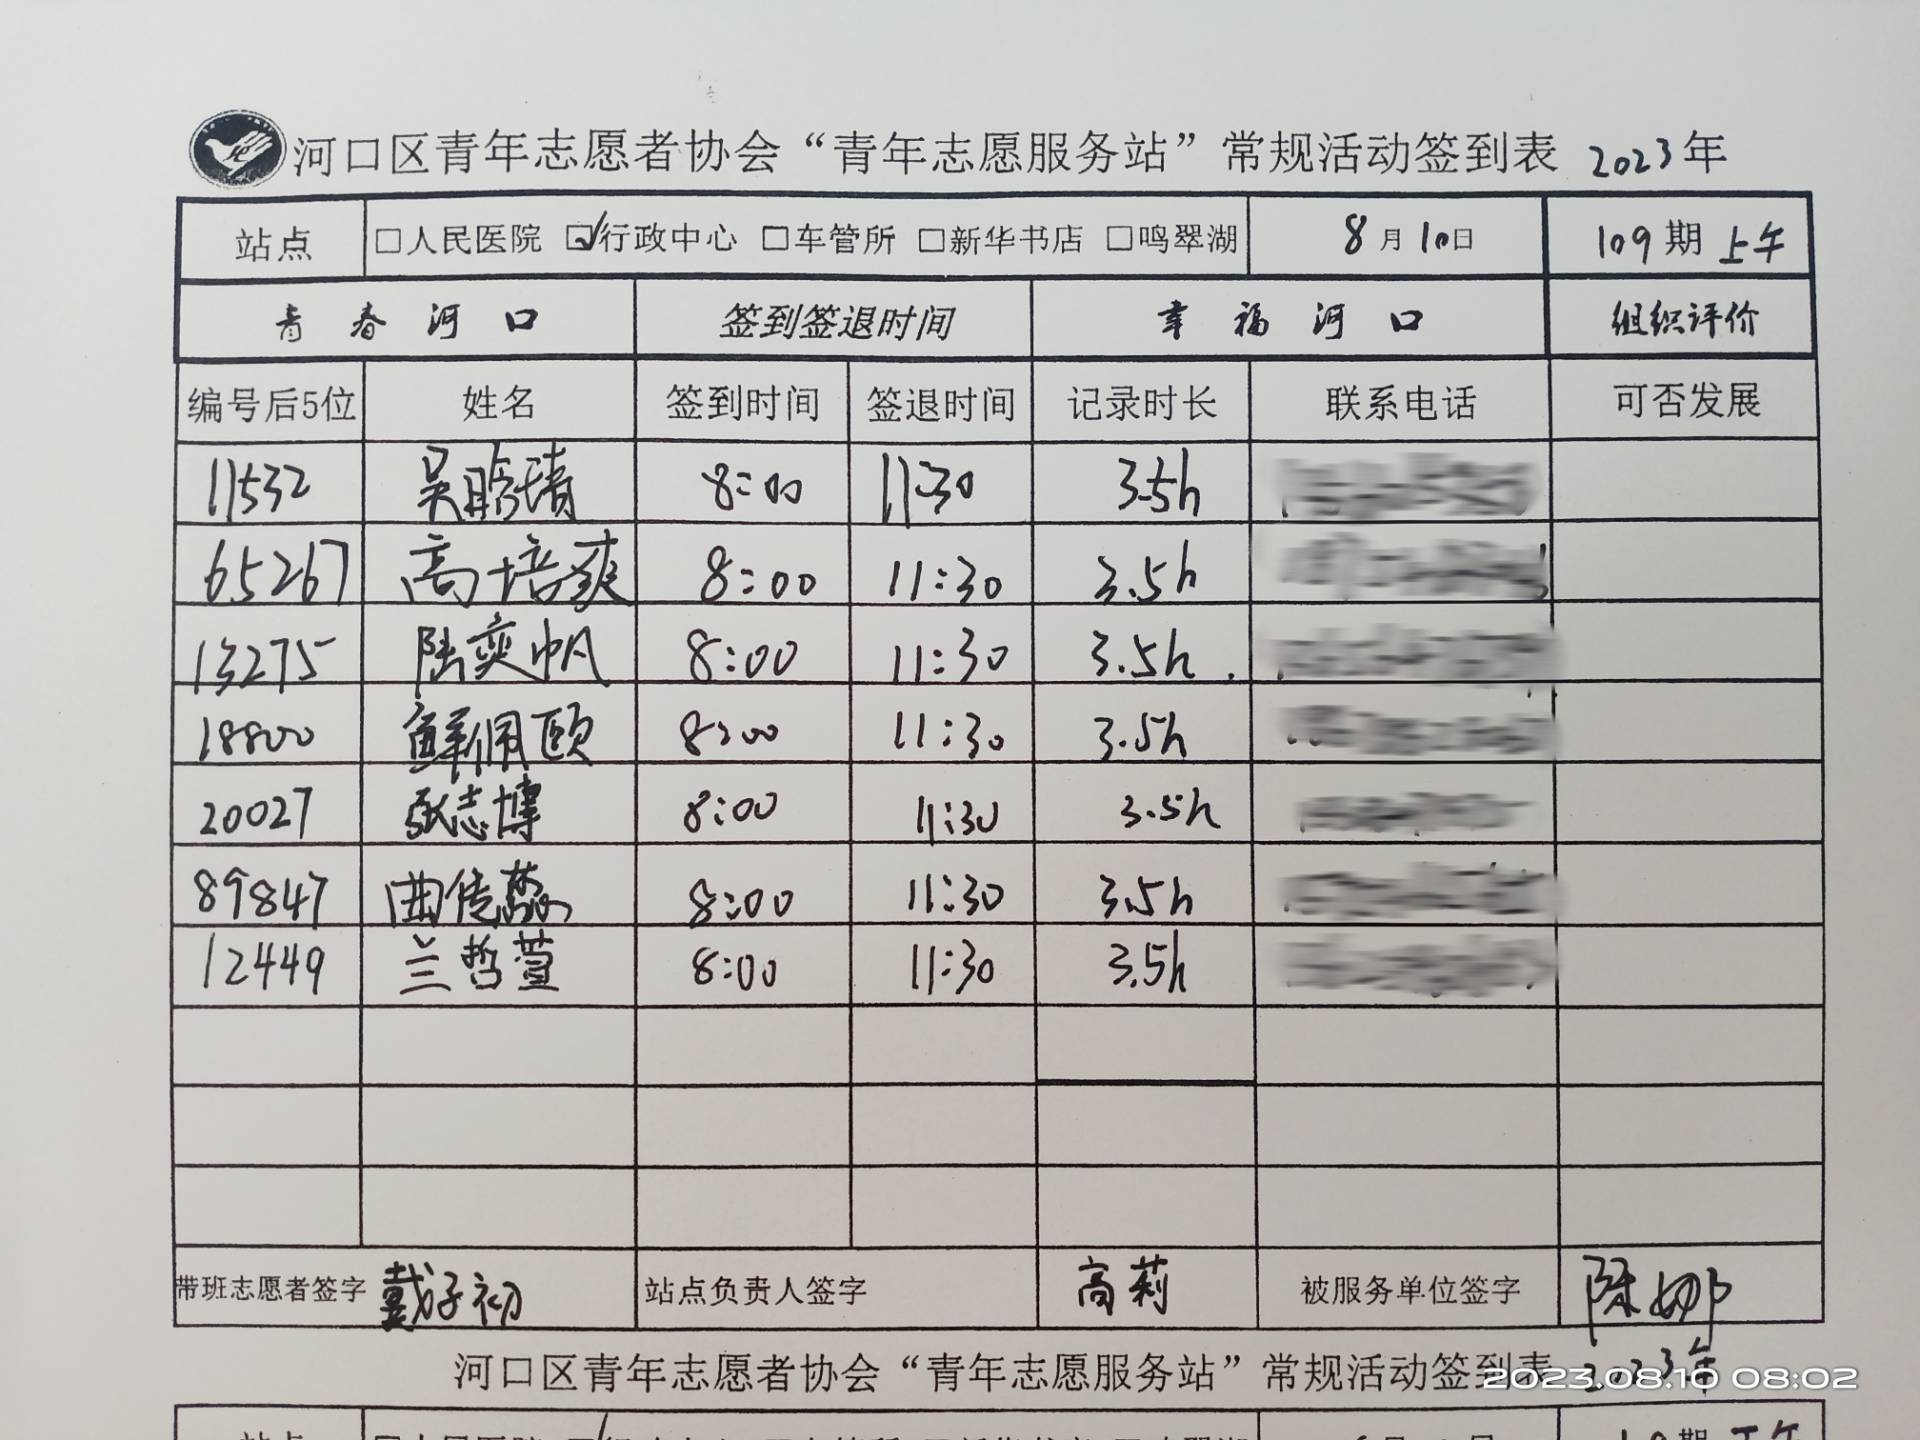 河口区青年志愿者协会“青年志愿服务站”常规活动签到表 2023年
站点 □人民医院 ☑行政中心 □车管所 □新华书店 □鸣翠湖 8月10日 109期 上午
青春河口 签到签退时间 幸福河口 组织评价
编号后5位 姓名 签到时间 签退时间 记录时长 联系电话 可否发展
11532 吴晗靖 8:00 11:30 3.5h
65267 高培爽 8:00 11:30 3.5h
13275 陆奕帆 8:00 11:30 3.5h
18800 鲜佩颐 8:00 11:30 3.5h
20027 张志博 8:00 11:30 3.5h
89847 曲传 8:00 11:30 3.5h
12449 兰哲萱 8:00 11:30 3.5h
带班志愿者签字 戴子初 站点负责人签字 高莉 被服务单位签字 陈娜
河口区青年志愿者协会“青年志愿服务站”常规活动签到表 2023年
2023.08.10 08:02